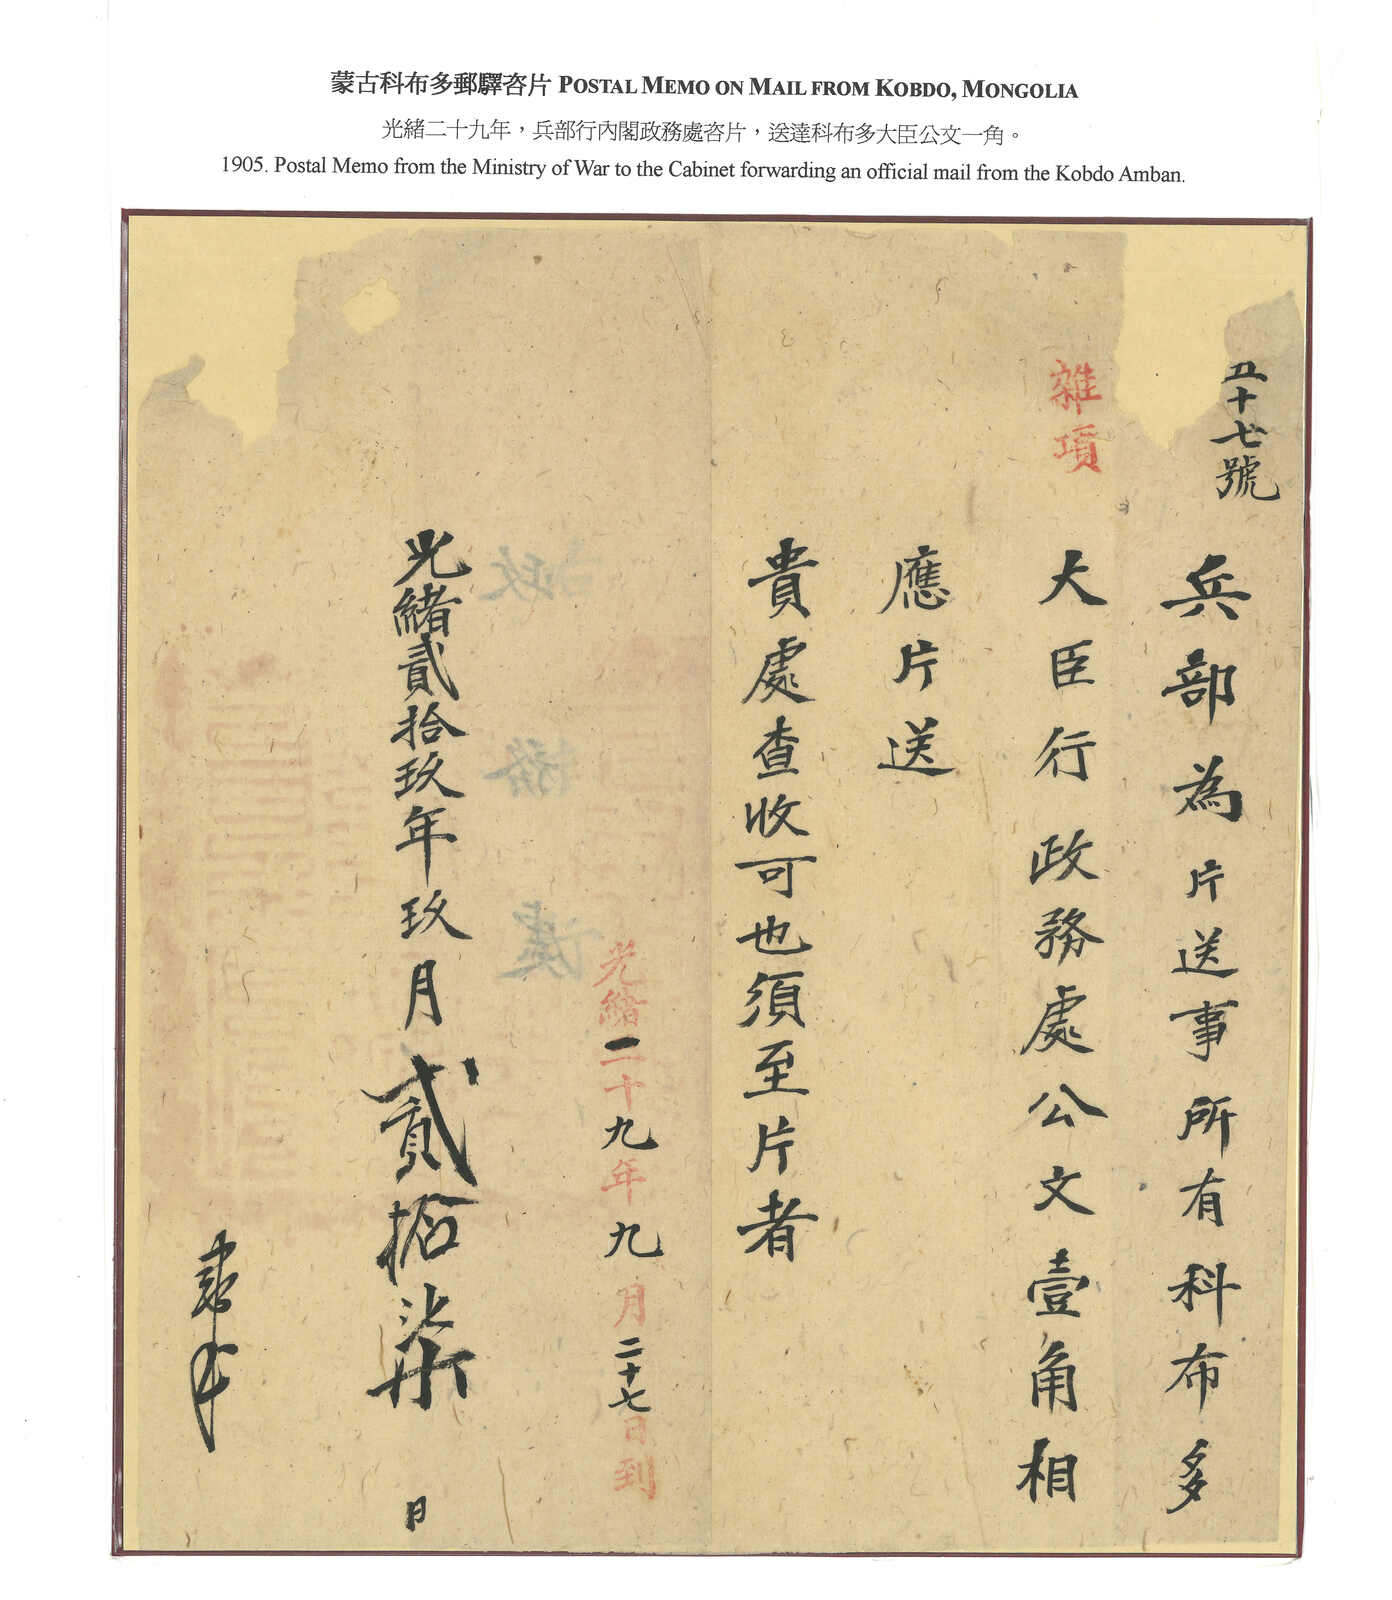 蒙古科布多郵驛咨片 POSTAL MEMO ON MAIL FROM KOBDO, MONGOLIA
光緒二十九年，兵部行內閣政務處咨片，送達科布多大臣公文一角。
1905. Postal Memo from the Ministry of War to the Cabinet forwarding an official mail from the Kobdo Amban.
五十七號
兵部為片送事所有科布多
雜項
大臣行政務處公文壹角相
應片送
貴處查收可也須至片者
光緒二十九年九月二十七日到
政務處
光緒貳拾玖年玖月貳拾柒日